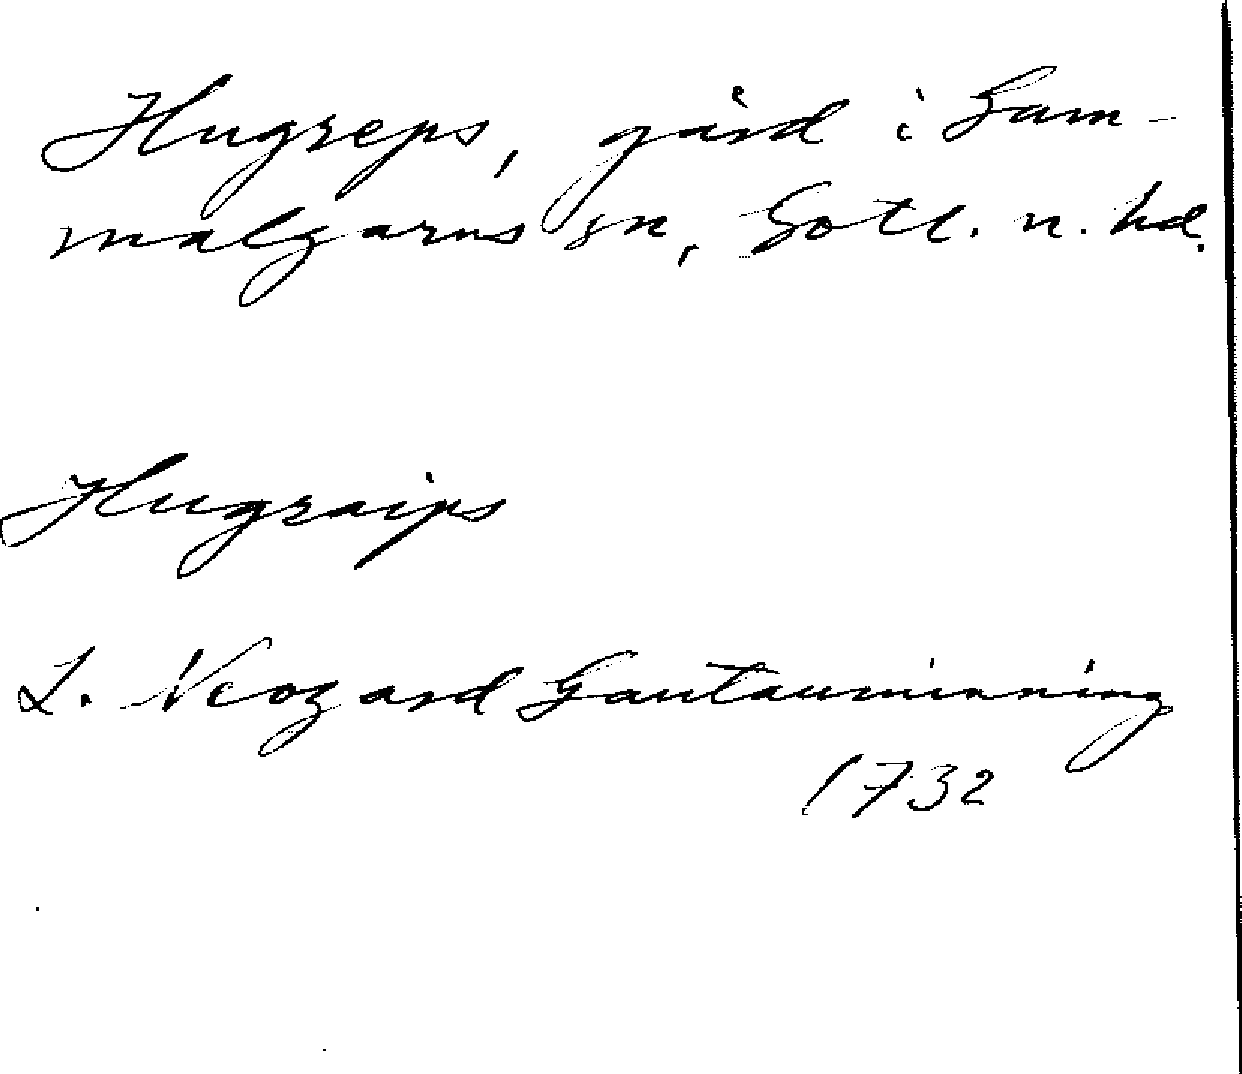 Hugreps, gård i Gam-
malgarns sn, Gotl. n. hd.
Hugraips
L. Neogard Gautauminning
1732